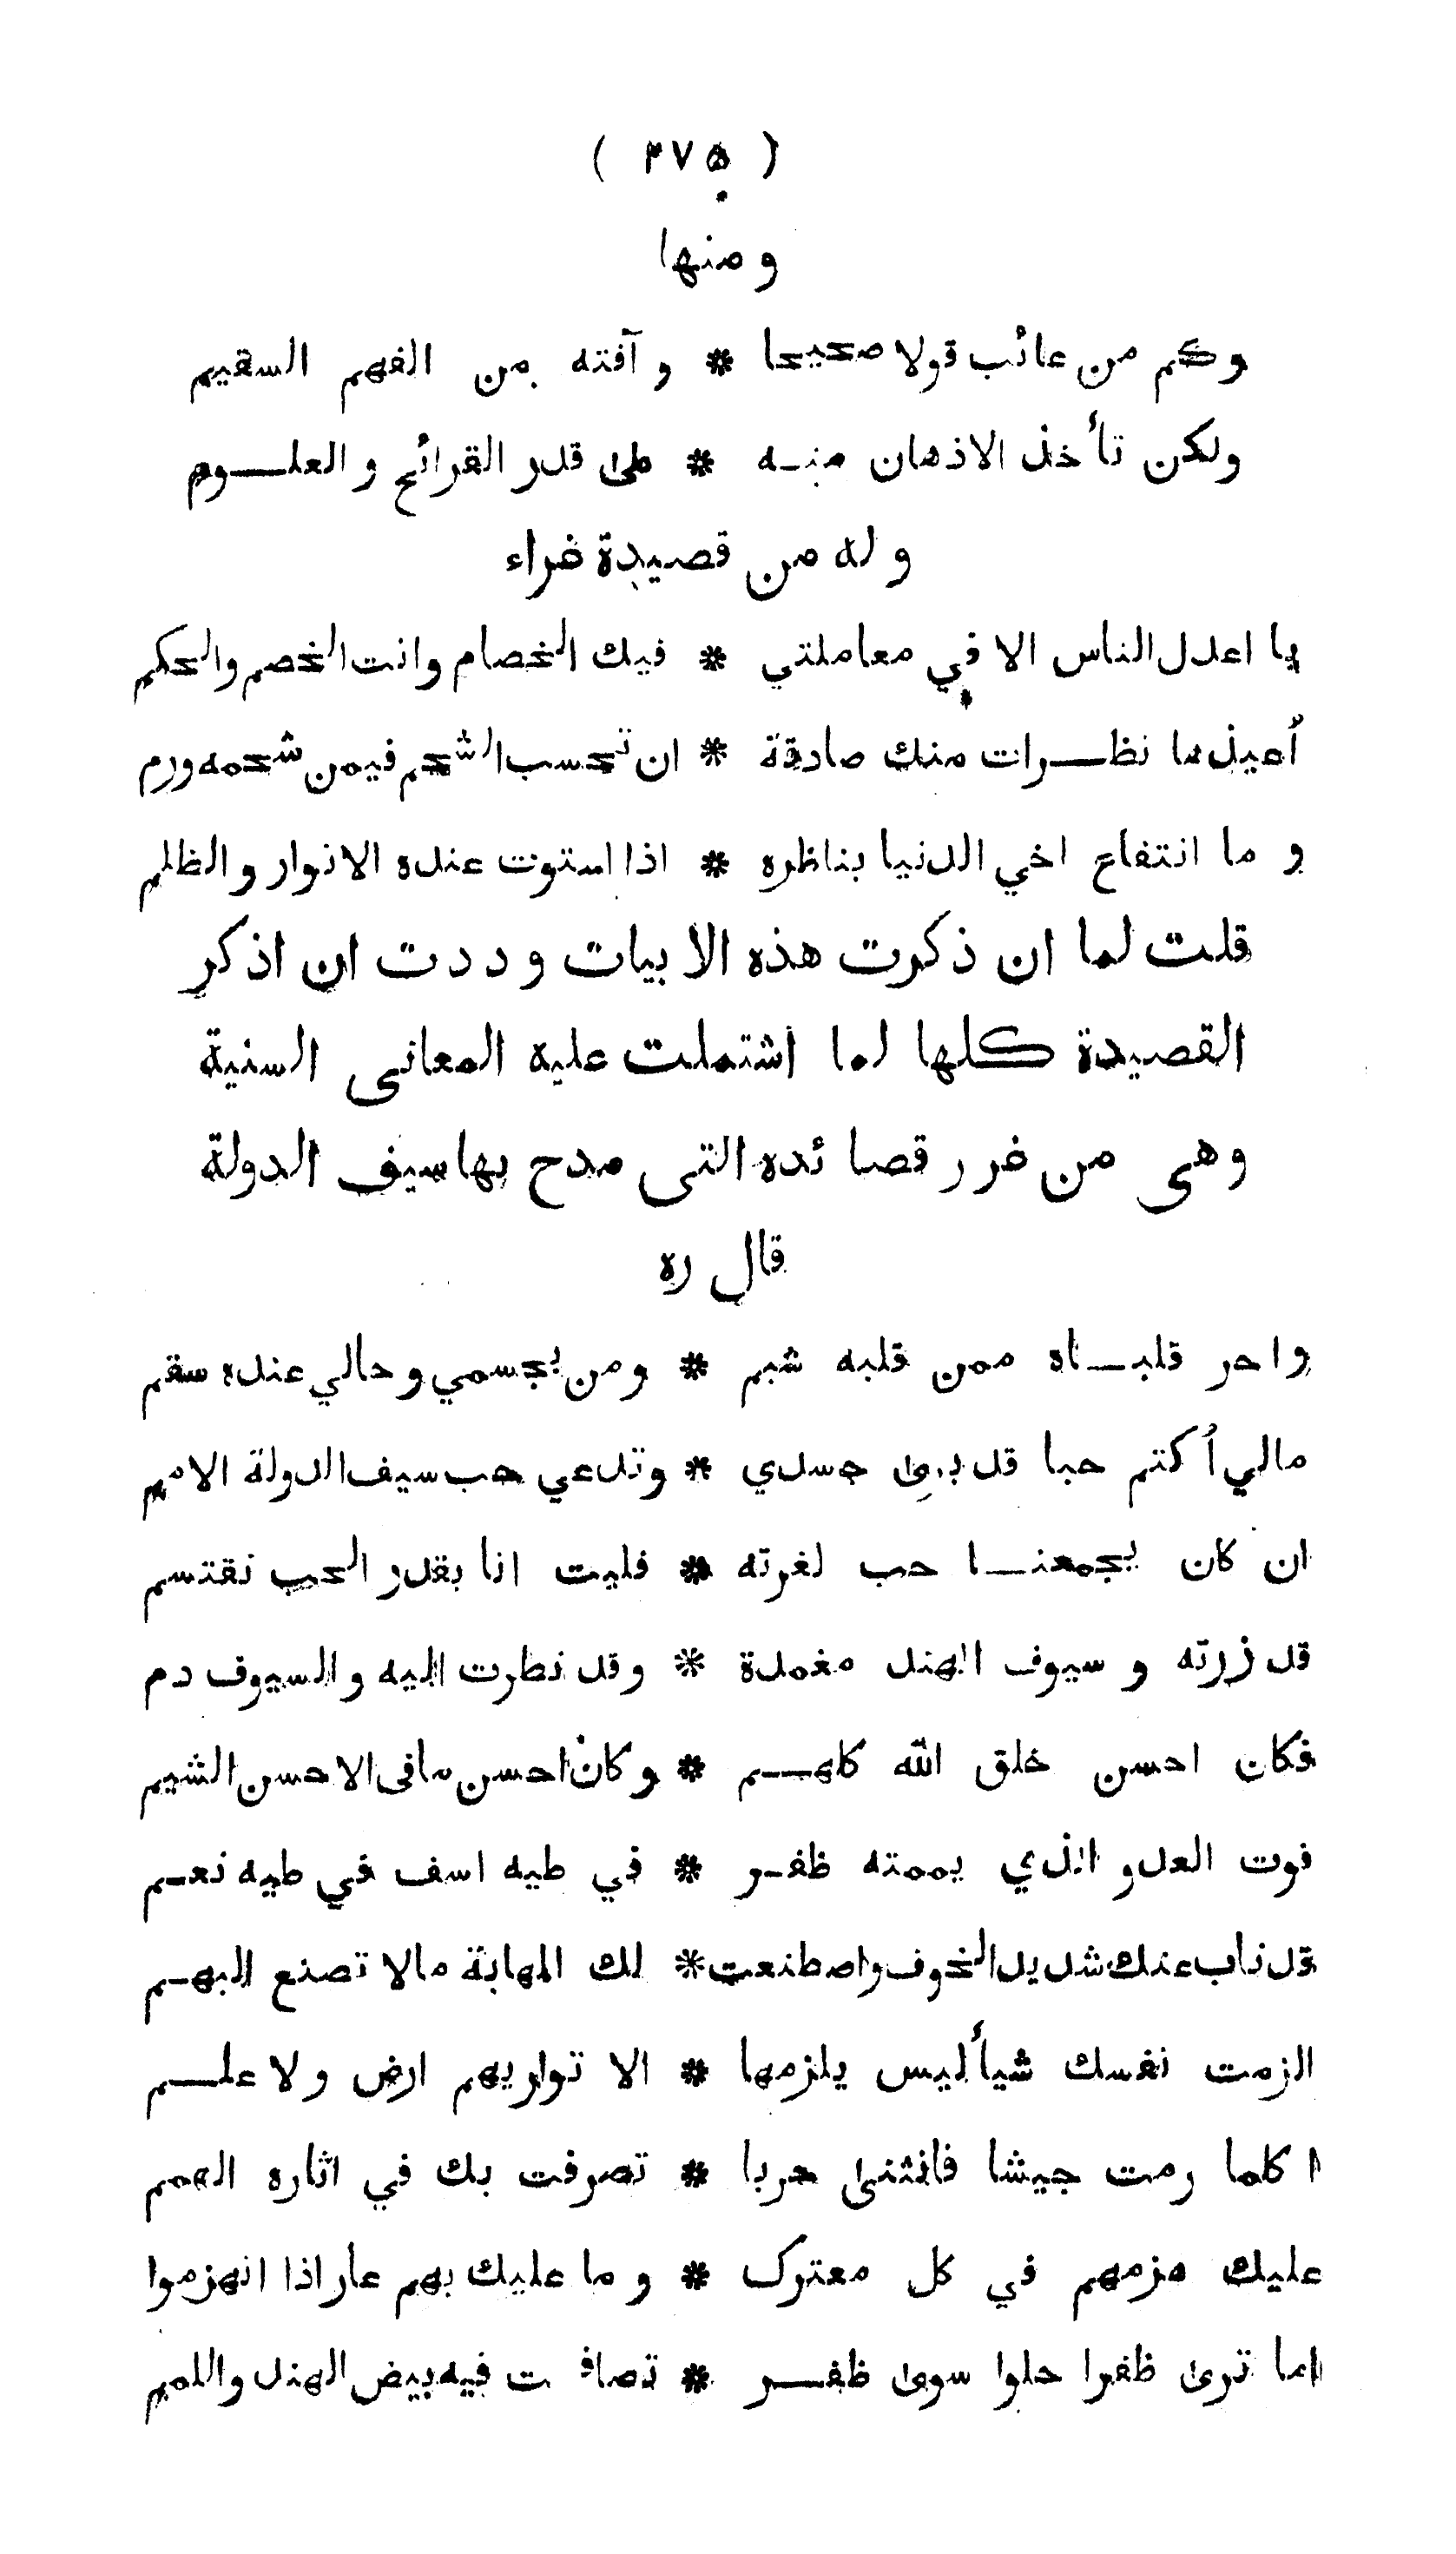 ( ٣٧٥ )
ومنها
وكم من عائب قولا صحيحا * و آفته من الفهم السقيم
ولكن تأخذ الاذهان منـه * على قدر القرائح والعلـــوم
وله من قصيدة غراء
يا اعدل الناس الا في معاملتي * فيك الخصام وانت الخصم والحكم
أعيذها نظــرات منك صادقة * ان تحسب الشحم فيمن شحمه ورم
و ما انتفاع اخي الدنيا بناظره * اذا استوت عنده الانوار والظلم
قلت لما ان ذكرت هذه الابيات وددت ان اذكر
القصيدة كلها لما اشتملت عليه المعانى السنية
وهى من غرر قصائده التى مدح بها سيف الدولة
قال ره
واحر قلبــاه ممن قلبه شبم * ومن بجسمي وحالي عنده سقم
مالي أكتم حبا قد برى جسدي * وتدعي حب سيف الدولة الامم
ان كان يجمعنــا حب لغرته * فليت انا بقدر الحب نقتسم
قد زرته و سيوف الهند مغمدة * وقد نظرت اليه والسيوف دم
فكان احسن خلق الله كلهــم * وكان احسن مافى الاحسن الشيم
فوت العدو الذي يممته ظفـر * في طيه اسف في طيه نعـم
قد ناب عنك شديد الخوف واصطنعت * لك المهابة مالا تصنع البهـم
الزمت نفسك شيأ ليس يلزمها * الا تواريهم ارض ولا علــم
اكلما رمت جيشا فانثنى هربا * تصرفت بك في اثاره الهمم
عليك هزمهم في كل معترك * و ما عليك بهم عار اذا انهزموا
اما ترى ظفرا حلوا سوى ظفــر * تصافحت فيه بيض الهند واللمم